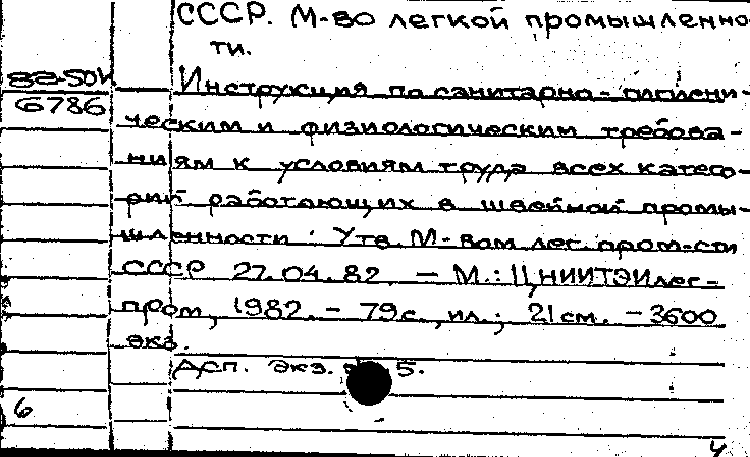 СССР. М-во легкой промышленно
ти.
82-50К
6786
Инструкция по санитарно-гигиени-
ческим и физиологическим требова-
ниям к условиям труда всех катего-
рий работающих в швейной промы-
шленности : Утв. М-вом лег. пром-сти
СССР 27.04.82. — М.: ЦНИИТЭИлег-
пром, 1982. - 79с., ил.; 21см. - 3600
экз.
Дсп. Экз. 5.
6